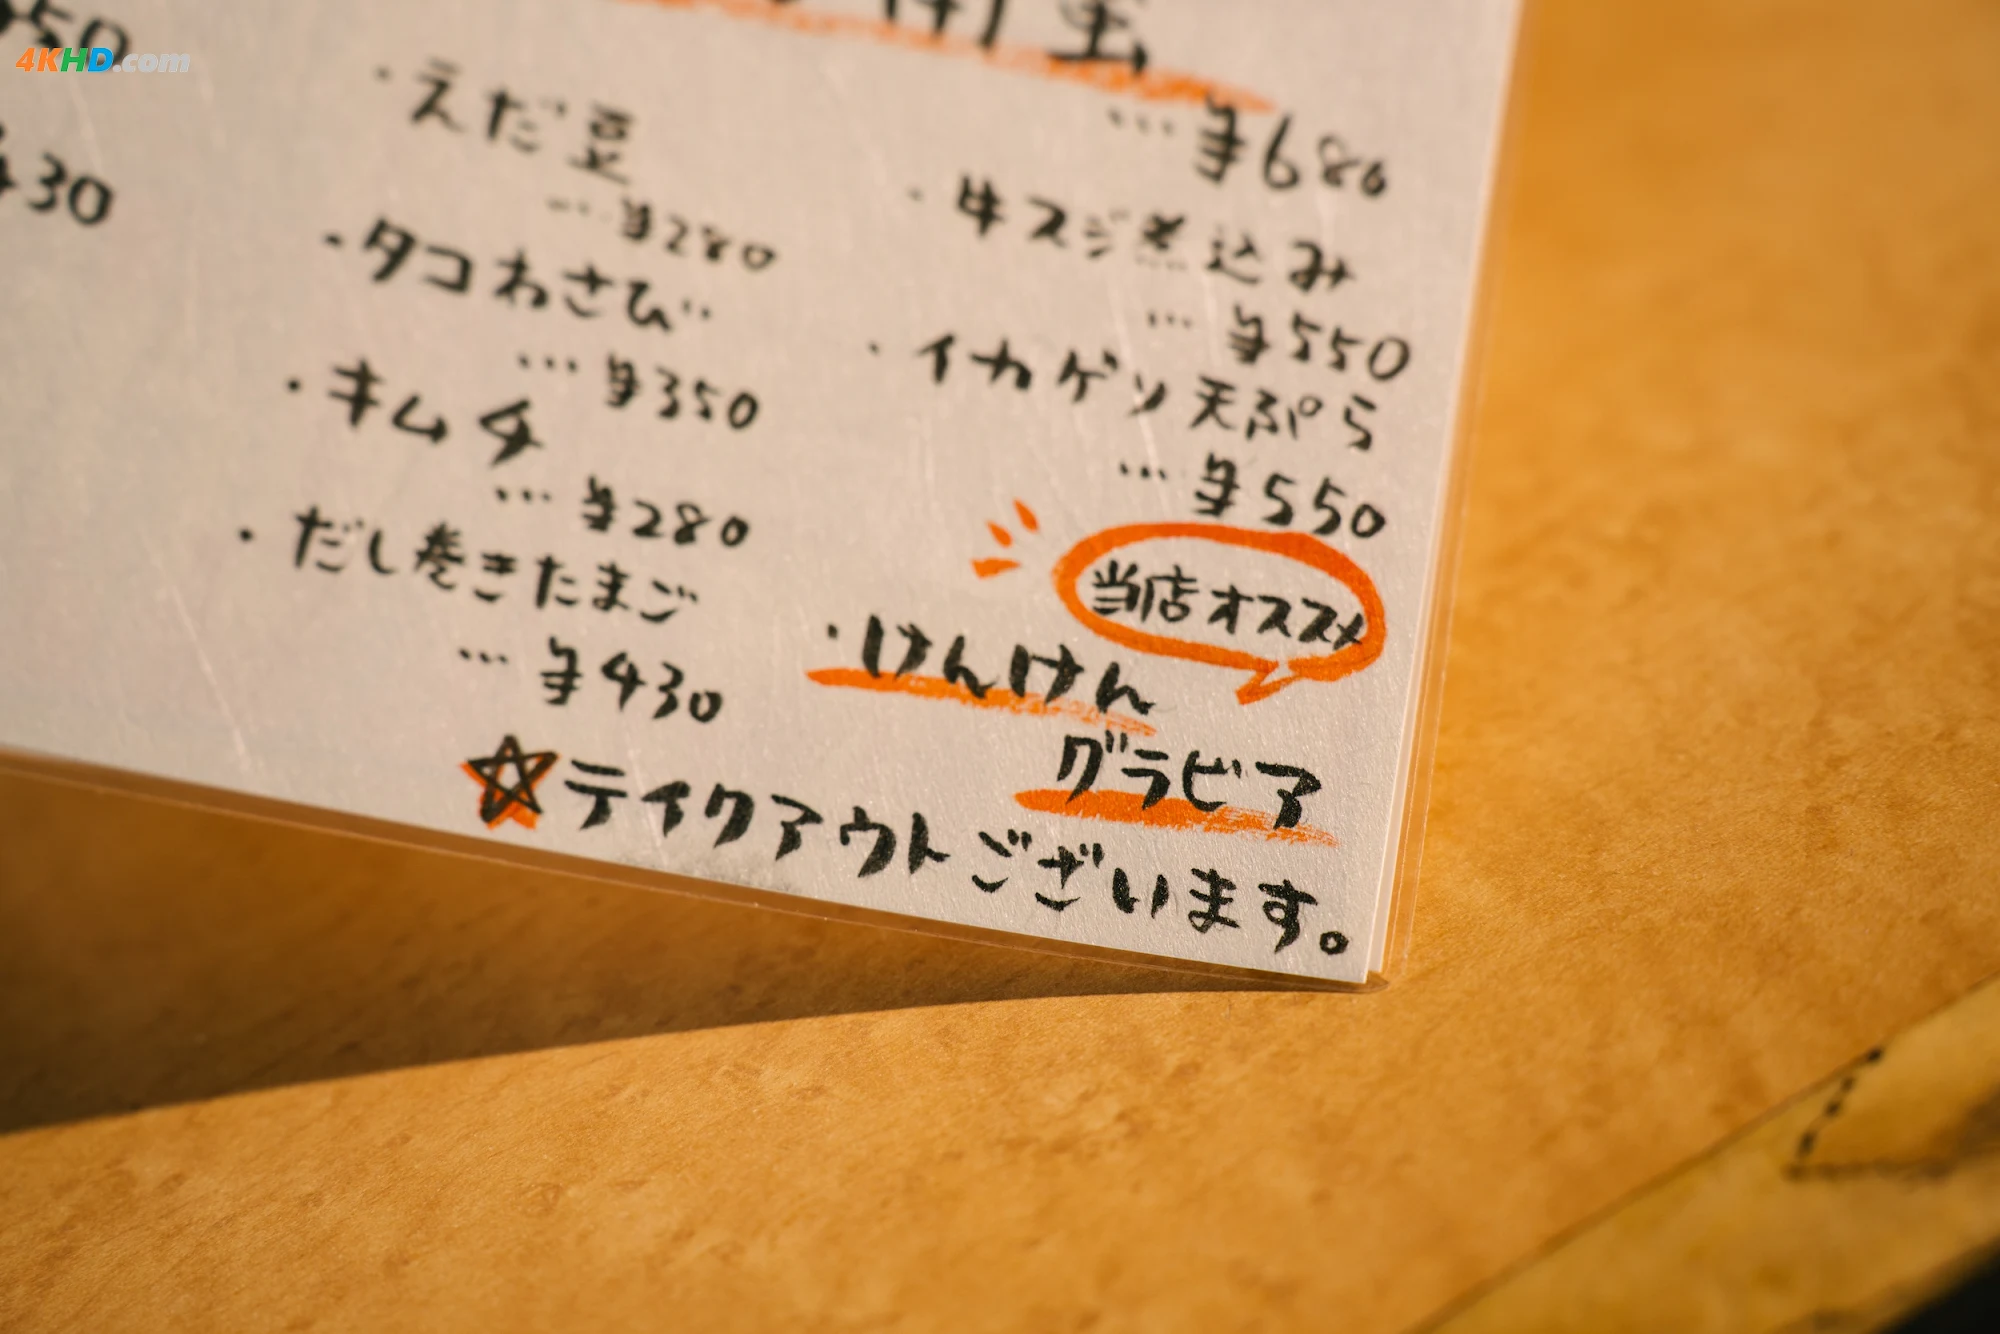 4KHD.com
¥430
・えだ豆
…¥280
・タコわさび
…¥350
・キムチ
…¥280
・だし巻きたまご
…¥430
…¥680
・牛スジ煮込み
…¥550
・イカゲソ天ぷら
…¥550
当店オススメ
・けんけん
グラビア
☆テイクアウトございます。